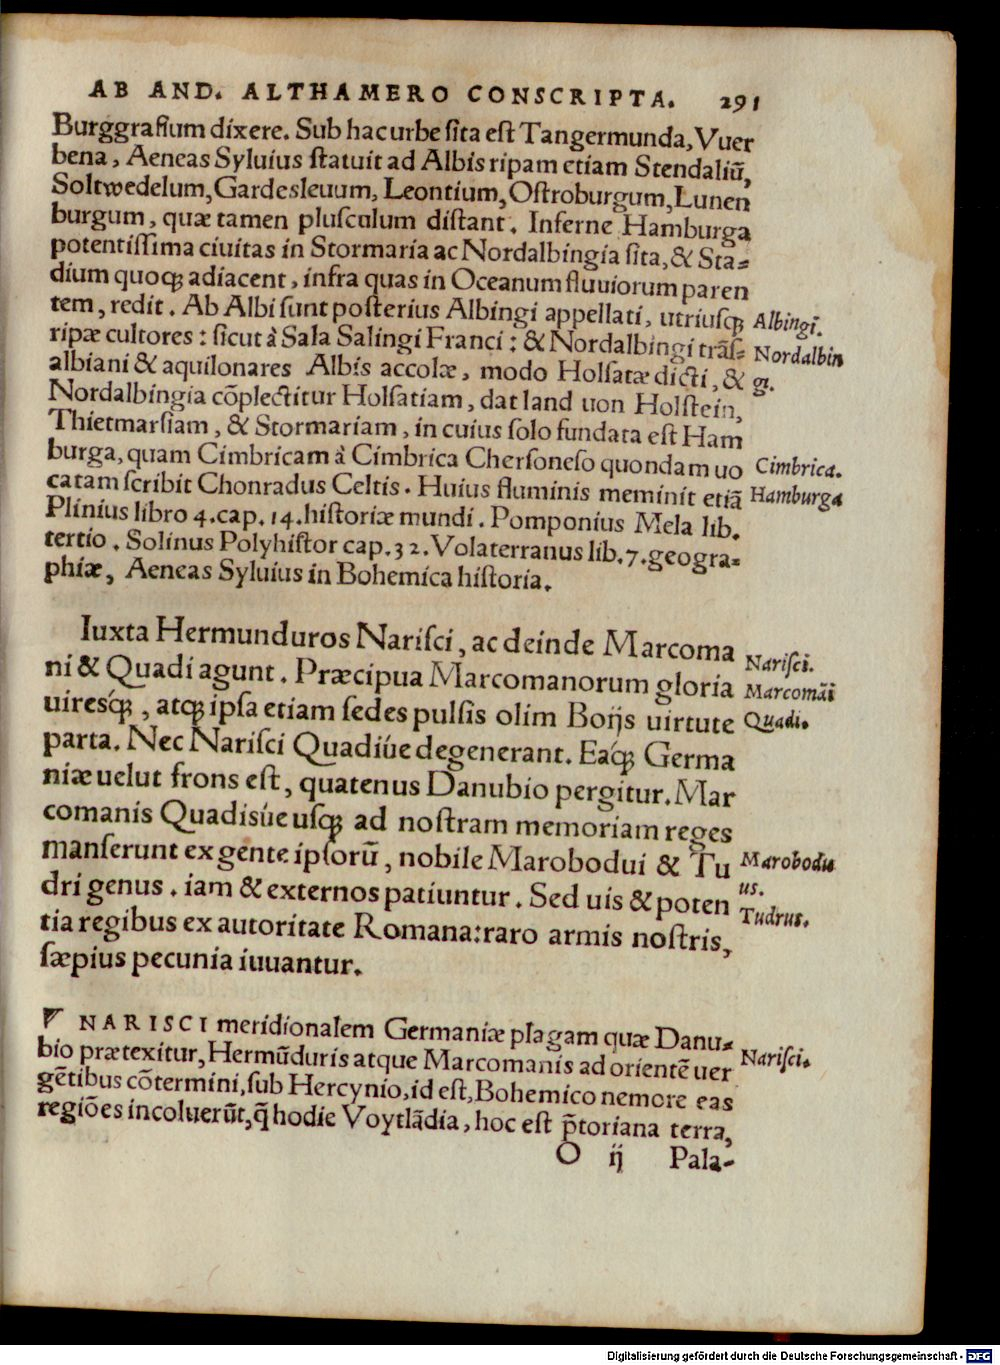 AB AND. ALTHAMERO CONSCRIPTA. 291
Burggrafium dixere. Sub hac urbe ſita eſt Tangermunda, Vuer
bena, Aeneas Syluius ſtatuit ad Albis ripam etiam Stendaliū,
Soltwedelum, Gardesleuum, Leontium, Oſtroburgum, Lunen
burgum, quæ tamen pluſculum diſtant. Inferne Hamburga
potentiſſima ciuitas in Stormaria ac Nordalbingia ſita, & Sta-
dium quoqꝫ adiacent, infra quas in Oceanum fluuiorum paren
tem, redit. Ab Albi ſunt poſterius Albingi appellati, utriuſqꝫ
Albingi.
ripæ cultores: ſicut à Sala Salingi Franci: & Nordalbingi trāſ-
Nordalbin
albiani & aquilonares Albis accolæ, modo Holſatæ dicti, &
gi.
Nordalbingia cōplectitur Holſatiam, dat land uon Holſtein,
Thietmarſiam, & Stormariam, in cuius ſolo fundata eſt Ham
burga, quam Cimbricam à Cimbrica Cherſoneſo quondam uo
Cimbrica.
catam ſcribit Chonradus Celtis. Huius fluminis meminit etiā
Hamburga
Plinius libro 4. cap. 14. hiſtoriæ mundi. Pomponius Mela lib.
tertio. Solinus Polyhiſtor cap. 32. Volaterranus lib. 7. geogra-
phiæ, Aeneas Syluius in Bohemica hiſtoria.
Iuxta Hermunduros Nariſci, ac deinde Marcoma
Nariſci.
ni & Quadi agunt. Præcipua Marcomanorum gloria
Marcomāi
uiresqꝫ, atqꝫ ipſa etiam ſedes pulſis olim Boijs uirtute
Quadi.
parta. Nec Nariſci Quadiúe degenerant. Eaqꝫ Germa
niæ uelut frons eſt, quatenus Danubio pergitur. Mar
comanis Quadisúe uſqꝫ ad noſtram memoriam reges
manſerunt ex gente ipſorū, nobile Marobodui & Tu
Marobodu
us.
dri genus. iam & externos patiuntur. Sed uis & poten
Tudrus.
tia regibus ex autoritate Romana: raro armis noſtris,
ſæpius pecunia iuuantur.
NARISCI meridionalem Germaniæ plagam quæ Danu-
bio prætexitur, Hermūduris atque Marcomanis ad orientē uer
Nariſci.
gētibus cōtermini, ſub Hercynio, id eſt, Bohemico nemore eas
regiōes incoluerūt, q̄ hodie Voytlādia, hoc eſt p̄toriana terra,
O ij Pala-
Digitalisierung gefördert durch die Deutsche Forschungsgemeinschaft - DFG